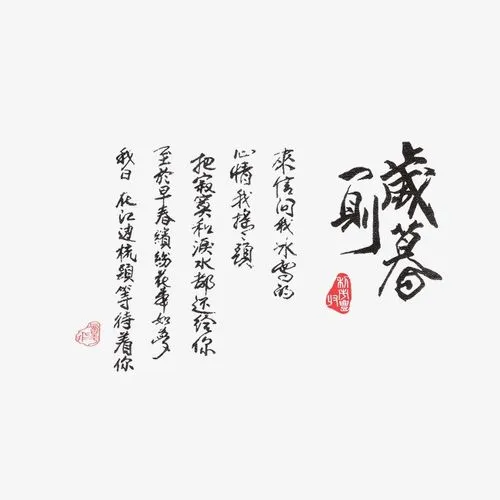 歲暮
一則
來信问我冰雪的
心情我搖搖頭
把寂寞和淚水都还给你
至於早春繽紛花事如夢
我日在江边梳頭等待着你